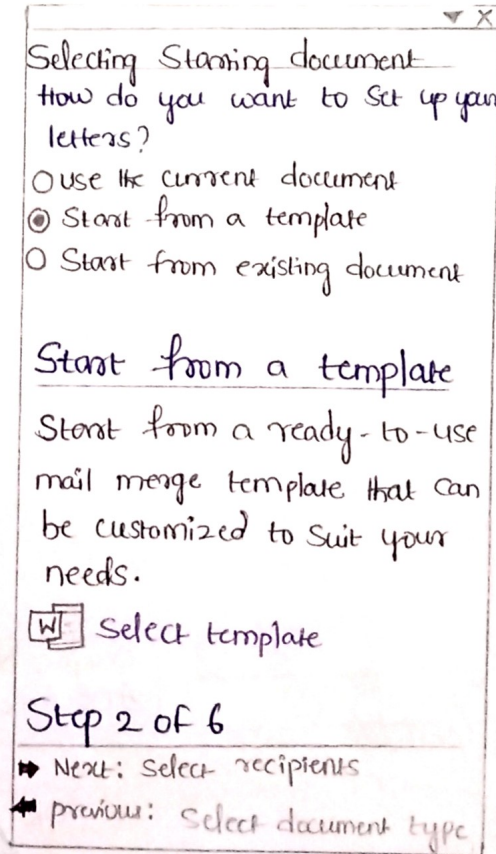 Selecting Starting document
How do you want to Set up your
letters?
use the current document
Start from a template
Start from existing document
Start from a template
Start from a ready-to-use
mail merge template that can
be customized to suit your
needs.
W Select template
Step 2 of 6
Next: Select recipients
previous: Select document type